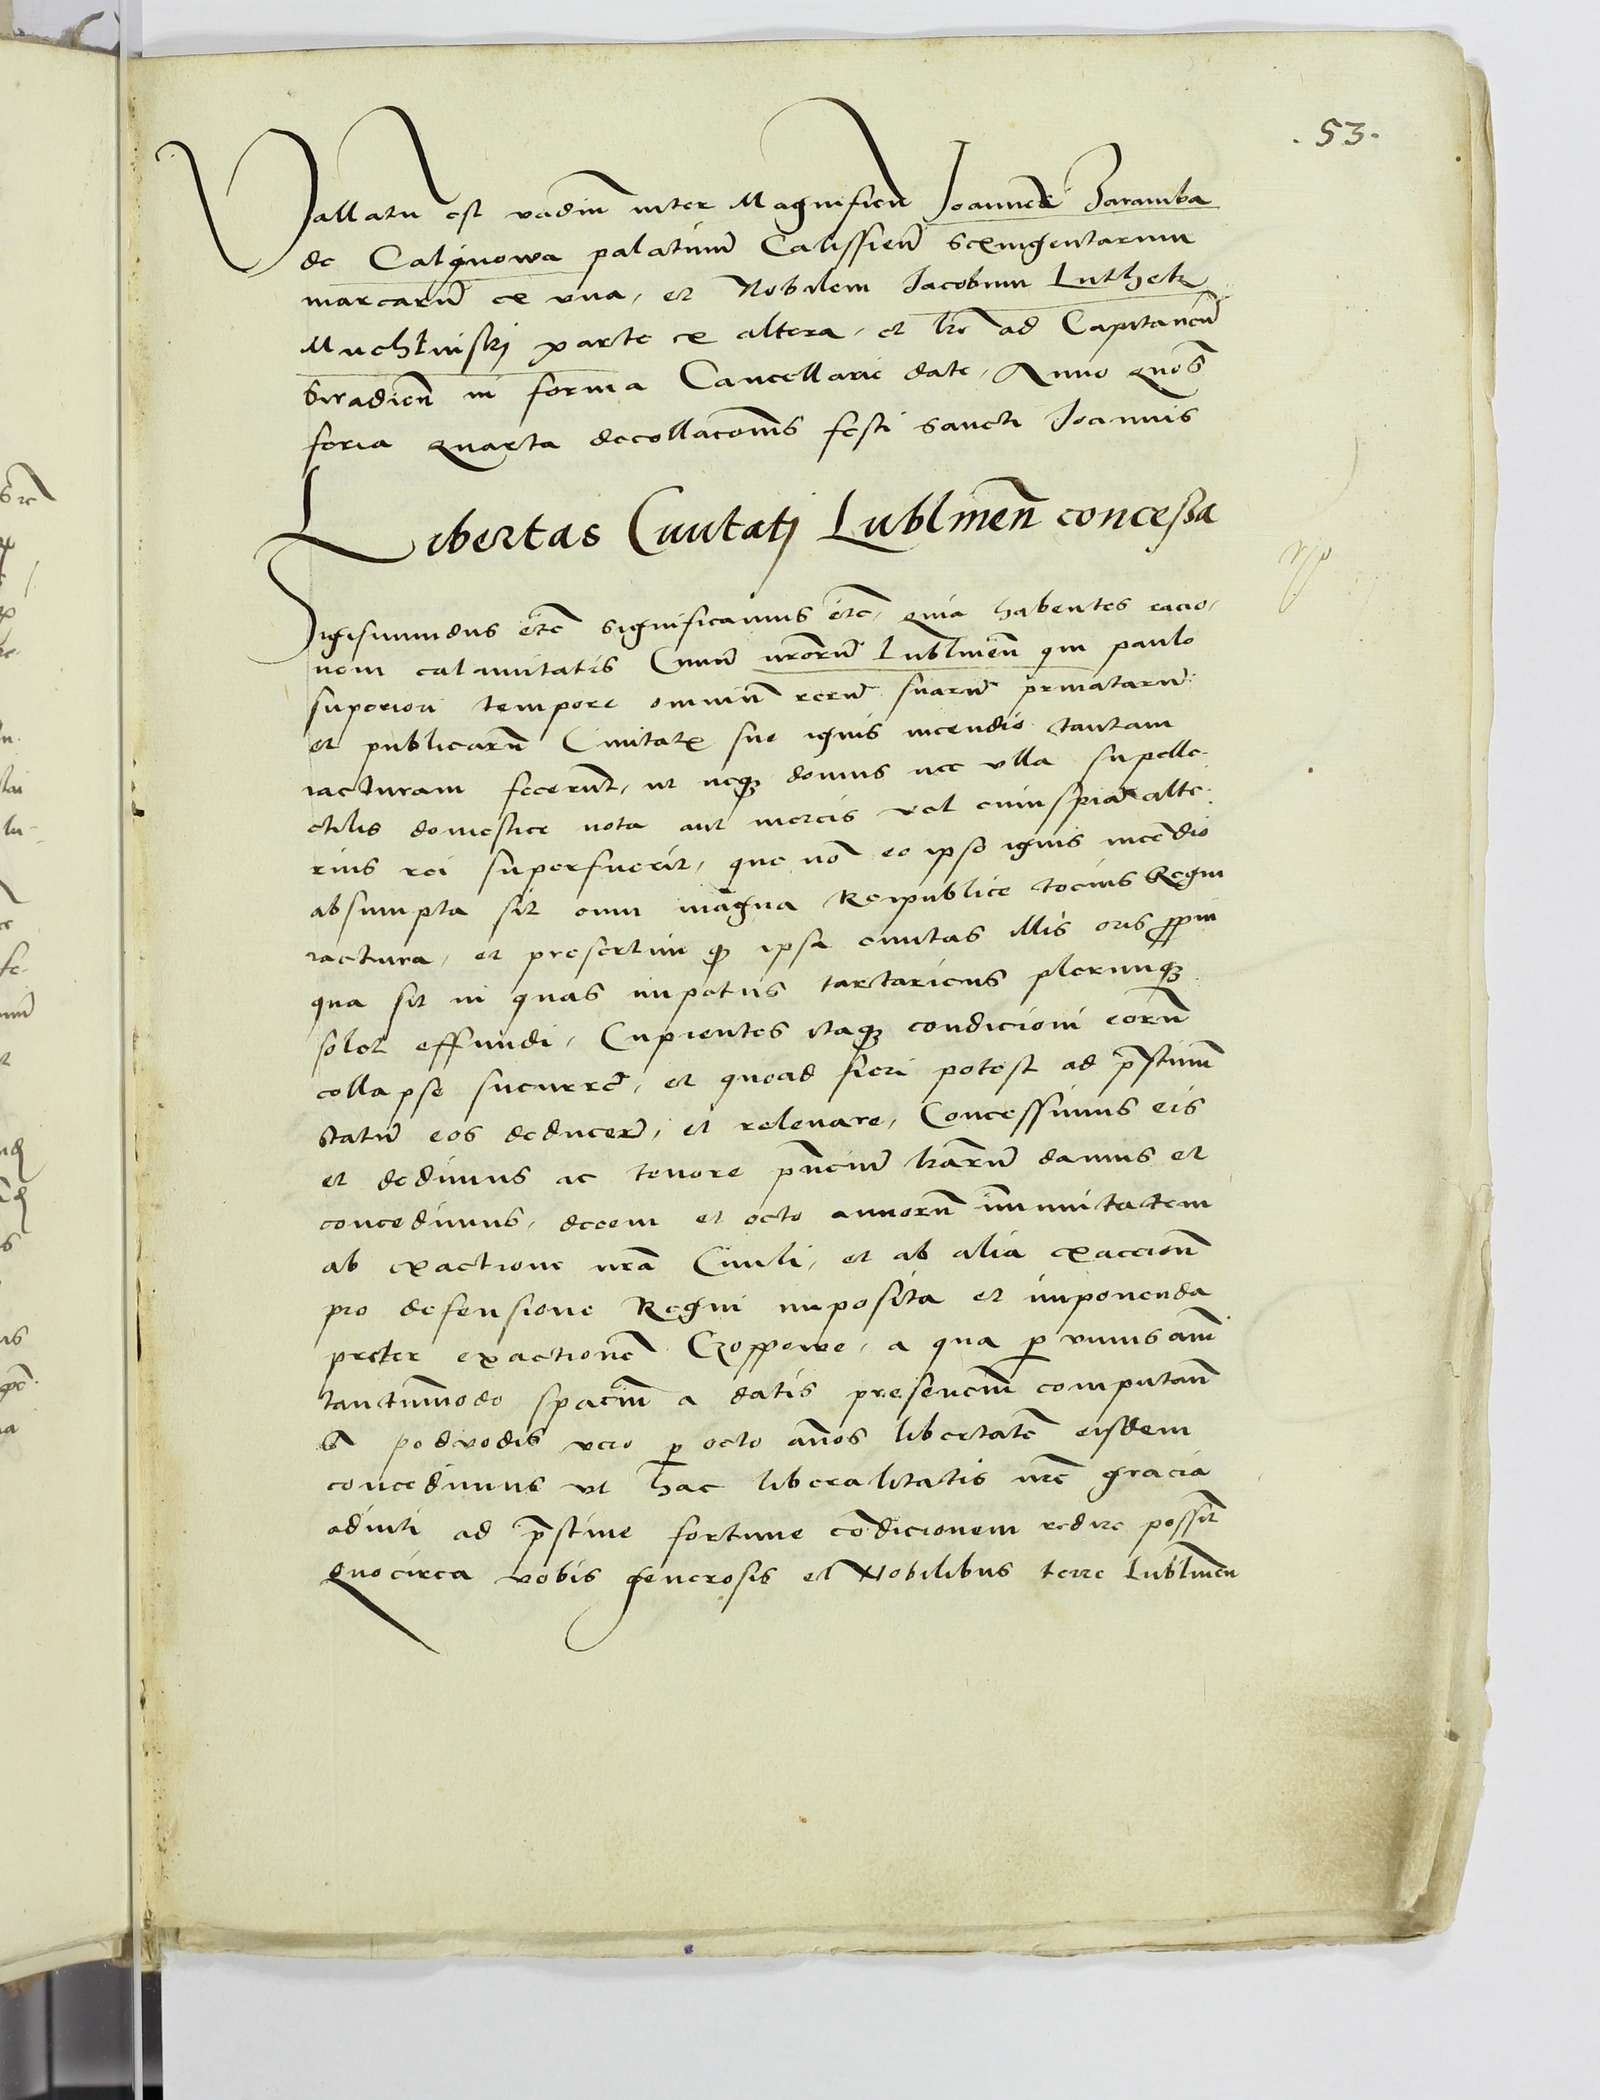 .53.
Vallatu est vadiu inter Magnificu Joannem Zaramba
de Calynowa palatinu Calissien sexingentarum
marcaru ex vna, et Nobilem Jacobum Luthek
Muchlinskj parte ex altera, et lre ad Capitaneu
Siradien in forma Cancellarie date, Anno quo s
feria quarta decollaconis festi sancti Joannis
Libertas Ciuitatj Lublinen concessa
Sigismundus etc significamus etc, quia habentes racio,
nem calamitatis Ciuiu nroru Lublinen qui paulo
superiori tempore omniu reru suaru priuataru
et publicaru Ciuitate sue ignis incendio tantam
iacturam fecerut, ut neq3 domus nec vlla supelle,
ctilis domestice nota aut mercis vel cuiuspia alte,
rius rei superfuerit, que no eo ipso ignis incedio
absumpta sit cum magna Reipublice tocius Regni
iactura, et presertim q3 ipsa ciuitas illis oris ppin
qua sit in quas impetus tartaricus plerumq3
solet effundi, Cupientes itaq3 condicioni eoru
collapse sucurre, et quoad fieri potest ad pstinu
statu eos deducer, et releuare, Concessimus eis
et dedimus ac tenore pnciu lraru damus et
concedimus, decem et octo annoru immunitatem
ab exactione nra Ciuili, et ab alia exaccion
pro defensione Regni imposita et imponenda
preter exactione Czoppowe, a qua p vnius ani
tantumodo spaciu a datis presenciu computan
A podvodis vero p octo anos libertate eisdem
concedimus vt hac liberalitatis nre gracia
adiuti ad pstine fortune codicionem redire possit
Quocirca vobis generosis et Nobilibus terre Lublinen